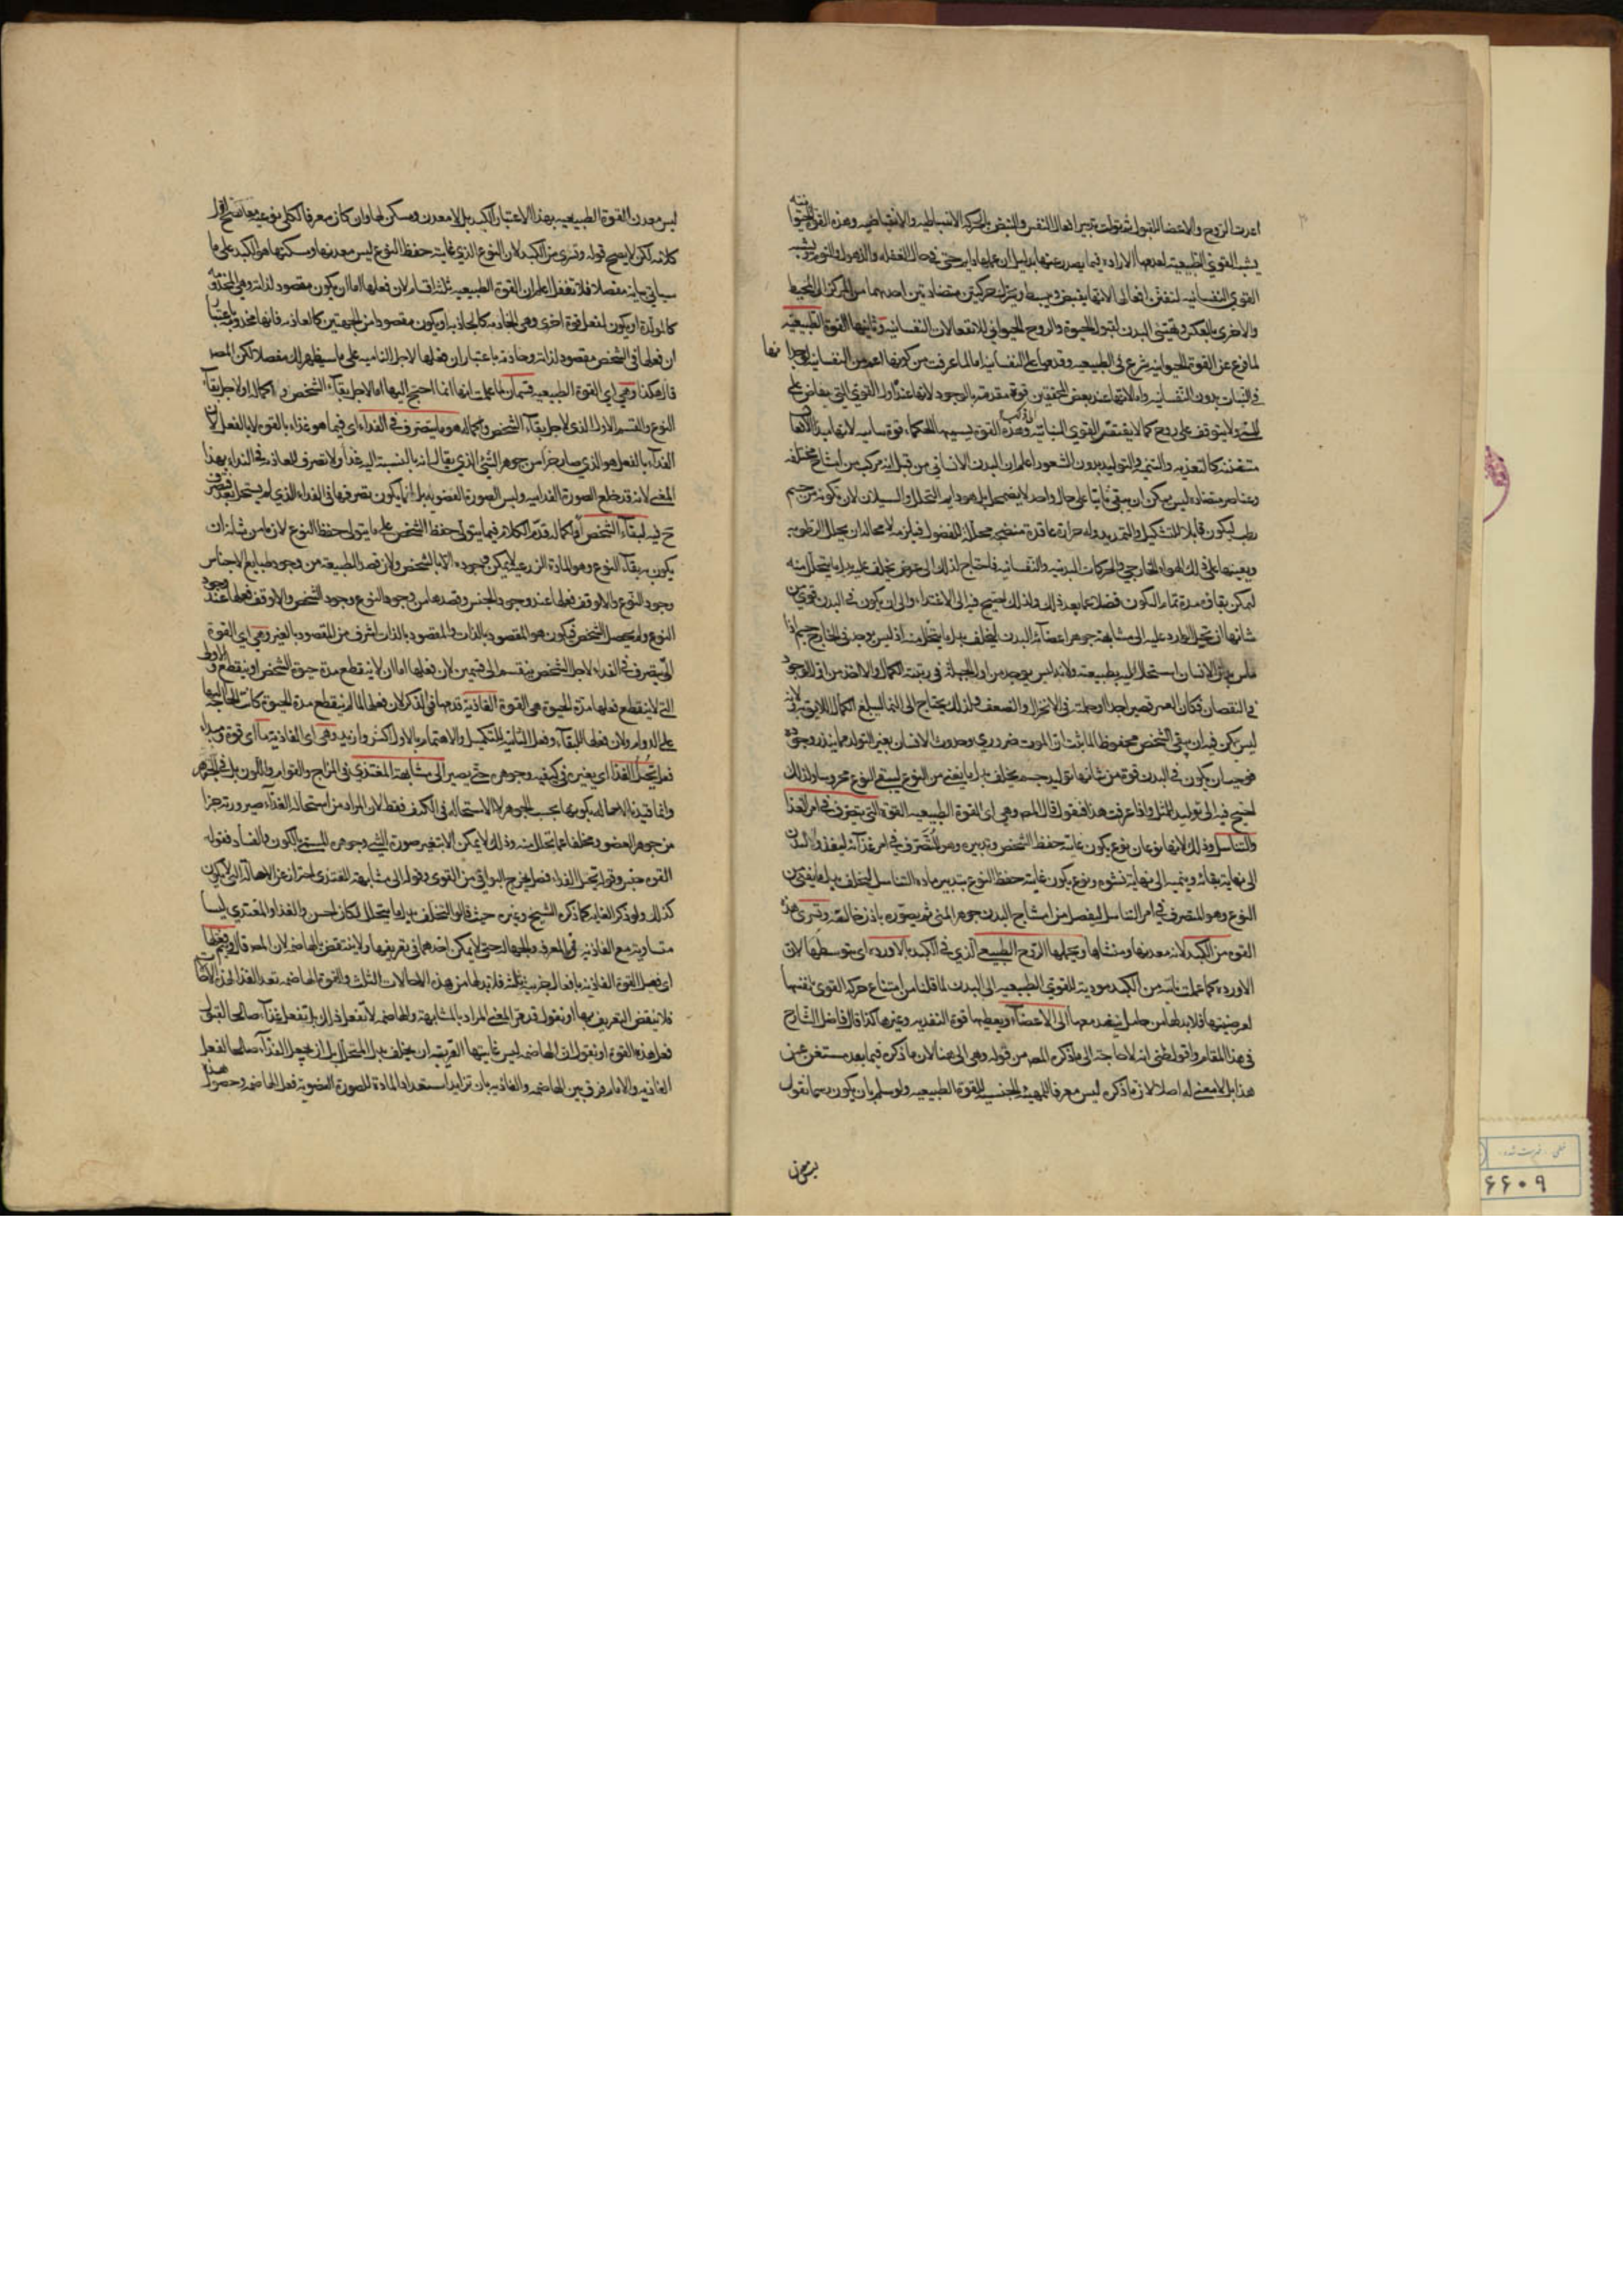 اعدت الروح والاعضا للقبول ثم تولت تدبير افعال النفس والنبض بالحركة الانبساطيه والانقباضيه وهذه القوة الحيوانيه
يشبه القوى الطبيعيه لعدمها الاراده فيما يصدر عنها بدليل ان عملها دايم حتى في حال الغفله والذهول والنوم ويشبه
القوى النفسانيه لتفنن افعالها لانها يقبض ويبسط ويتحرك حركتين متضادتين احديهما من المركز الى المحيط
والاخرى بالعكس ويهيئ البدن لقبول الحيوة والروح الحيواني للانفعالات النفسانيه وثانيها القوة الطبيعيه
لما فرغ عن القوة الحيوانيه شرع في الطبيعيه وقدمها على النفسانيه اما لما عرفت من كونها اعم من النفسانيه لوجودها
في النبات بدون النفسانيه واما لانها عند بعض المحققين قوة متقدمة بالوجود لانها عنده اول القوى التي يفاض على
المني ولا يتوقف على روح كما لا يفتقر القوى النباتيه وهذه القوة يسميها الحكماء قوة نباتيه لانها مبدأ الافعال
متفننه كالتغذيه والتنميه والتوليد بدون الشعور اعلم ان البدن الانساني من قبل انه مركب من امشاج مختلفه
وعناصر متضاده ليس يمكن ان يبقى ثابتا على حال واحد لا يضمحل بل هو دايم التحلل والسيلان لان كونه من جسم
رطب ليكون قابلا للتشكيل والتمديد وله حرارة عاقدة منضجه محللة للفضول فيلزمه لا محاله ان يحلل الرطوبه
ويعينها على ذلك الهواء الخارجي والحركات البدنيه والنفسانيه فاحتاج لذلك الى عوض يخلف عليه بدل ما يتحلل منه
ليمكن بقاؤه مدة تمام التكون فضلا عما بعد ذلك ولذلك احتيج فيه الى الاغتذاء والى ان يكون في البدن قوى من
شانها ان تحيل الوارد عليه الى مشابهة جوهر اعضاء البدن ليخلف بدل ما يتحلل منه اذ ليس يوجد في الخارج جسم اذا
ماس بدن الانسان استحال اليه بطبيعته ولانه ليس يوجد من اول الجبلة في رتبة الكمال والا لاخذ من اول الوجود
في النقصان فكان العمر قصيرا جدا وجملته في الانخزال والضعف فلذلك يحتاج الى النما ليبلغ الكمال اللايق به لانه
ليس يمكن فيه ان يبقى الشخص محفوظا لما ثبت ان الموت ضروري وحدوث الانسان بغير التولد مما يندر وجوده
فوجب ان يكون في البدن قوة من شانها توليد جسم يخلف بدل ما يفنى من النوع ليبقى النوع محروسا ولذلك
احتيج فيه الى توليد المثل واذا عرفت هذا فنقول قال المصـ وهي اى القوة الطبيعيه القوة التي يتصرف في امر الغذا
والتناسل وذلك لانها نوعان نوع يكون غايته حفظ الشخص وتدبيره وهو المتصرف في امر غذائه ليغذو البدن
الى نهاية بقائه وينميه الى نهاية نشوه ونوع يكون غايته حفظ النوع بتدبير مادة التناسل ليخلف بدل ما يفنى من
النوع وهو المتصرف في امر التناسل ليفصل من امشاج البدن جوهر المني ثم يصوره باذن خالقه وتسرى هذه
القوه من الكبد لانه معدنها ومنشاها ويحملها الروح الطبيعي الذي في الكبد بالاورده اى بتوسطها لان
الاورده كما علمت نابته من الكبد مودية للقوى الطبيعيه الى البدن لما قلنا من امتناع حركة القوى بنفسها
لعرضيتها فلا بد لها من حامل ينفد معها الى الاعضاء ويعطيها قوة التغذيه وغيرها كذا قال فاضل الشارح
في هذا المقام واقول ظني انه لا حاجة الى ما ذكره المصـ من قوله وهي الى هنا لان ما ذكره فيما بعد مستغن عن
هذا بل لا معنى له اصلا لان ما ذكره ليس معرفا للمهية الجنسيه للقوة الطبيعيه ولو سلم بان يكون رسما نقول
ليس معدن
ليس معدن القوة الطبيعيه بهذا الاعتبار الكبد بل لا معدن ومسكن لها وان كان معرفا لكل نوعيه معا صح اول
كلامه لكن لا يصح قوله وتسرى من الكبد لان النوع الذي غايته حفظ النوع ليس معدنها ومسكنها هو الكبد على ما
سياتي بيانه مفصلا فلا تغفل اعلم ان القوة الطبيعيه ثلثه اقسام لان فعلها اما ان يكون مقصود لذاته وهي المخدومه
كالمولدة او يكون لفعل قوة اخرى وهي الخادمه كالجاذبه او يكون مقصودا من الجهتين كالغاذيه فانها مخدومه باعتبار
ان فعلها في الشخص مقصود لذاته وخادمة باعتبار ان فعلها لاجل الناميه على ما سيظهر لك مفصلا لكن المصـ
قال هكذا وهي اى القوة الطبيعيه قسمان لما علمت انها انما احتيج اليها اما لاجل بقاء الشخص و اكماله او لاجل بقاء
النوع والقسم الاول الذي لاجل بقاء الشخص واكماله هو ما يتصرف في الغذاء اى فيما هو غذاء بالقوه لا بالفعل لان
الغذاء بالفعل هو الذي صار جزءا من جوهر الشئ الذي يقال انه بالنسبة اليه غذا ولا تصرف للغاذيه في الغذاء بهذا
المعنى لانه قد خلع الصورة الغذائيه ولبس الصورة العضويه بل انما يكون تصرفها في الغذاء الذي لم يستحل بعد فيتصرف
ح فيه لبقاء الشخص او اكماله قدم الكلام فيما يتولى حفظ الشخص على ما يتولى حفظ النوع لان ما من شانه ان
يكون به بقاء النوع وهو المادة الزرعيه لا يمكن وجوده الا بالشخص ولان قصد الطبيعه من وجود طبايع الاجناس
وجود النوع والا لوقف فعلها عند وجود الجنس وقصدها من وجود النوع وجود الشخص والا لوقف فعلها عند وجود
النوع ولم يحصل الشخص فيكون هو المقصود بالذات والمقصود بالذات اشرف من المقصود بالغير وهي اى القوة
التي يتصرف في الغذاء لاجل الشخص ينقسم الى قسمين لان فعلها اما ان لا ينقطع مدة حيوة الشخص او ينقطع والاولى
التي لا ينقطع فعلها مدة الحيوة هي القوة الغاذية قدمها في الذكر لان فعلها لما لم ينقطع مدة الحيوة كانت الحاجة اليها
على الدوام ولان فعلها للبقاء وفعل الثانية للتكميل والاهتمام بالاول اكثر وازيد وهي اى الغاذية ما اى قوة ومبدء
فعل تحيل الغذا اى يغيره في كيفيه وجوهره حتى يصير الى مشابهة المغتذي في المزاج والقوام واللون بل في الجوهر
وانما قيدنا الاحاله بكونها بحسب الجوهر لا الاستحاله في الكيف فقط لان المراد من استحالة الغذاء صيرورته جزا
من جوهر العضو ومخلفا عما يتحلل منه وذلك لا يمكن الا بتغير صورة الشئ وجوهره المسمى بالكون والفساد فقوله
القوه جنس وقوله تحيل الغذاء فصل يخرج البواقي من القوى وقوله الى مشابهة المغتذي احتراز عن الاحالة التي لا يكون
كذلك ولو ذكر الغايه كما ذكره الشيخ وغيره حيث قالوا ليخلف بدل ما يتحلل لكان احسن والغذا والمغتذي ليسا
متساويه مع الغاذيه في المعرفه والجهاله حتى لا يمكن اخذهما في تعريفها ولا ينتقض بالهاضمه لان المصـ قال ويتم فعلها
اى فعل القوة الغاذيه بافعال جزئيه ثلثه فلا بد لها من هذه الاحالات الثلث والقوة الهاضمه تعد الغذا لهذه الافعال
فلا ينقض التعريف بها او نقول قد عرف المعنى المراد بالمشابهة والهاضمه لا تفعل ذلك بل تفعل غذاء صالحا لقبول
فعل هذه القوة او نقول ان الهاضمه ليس غايتها القريبه ان يخلف بدل المتحلل بل ان يجعل الغذاء صالحا لفعل
الغاذيه والامام فرق بين الهاضمه والغاذيه بان تزايد استعداد المادة للصورة العضويه فعل الهاضمه وحصول هذا
۶۶۰۹